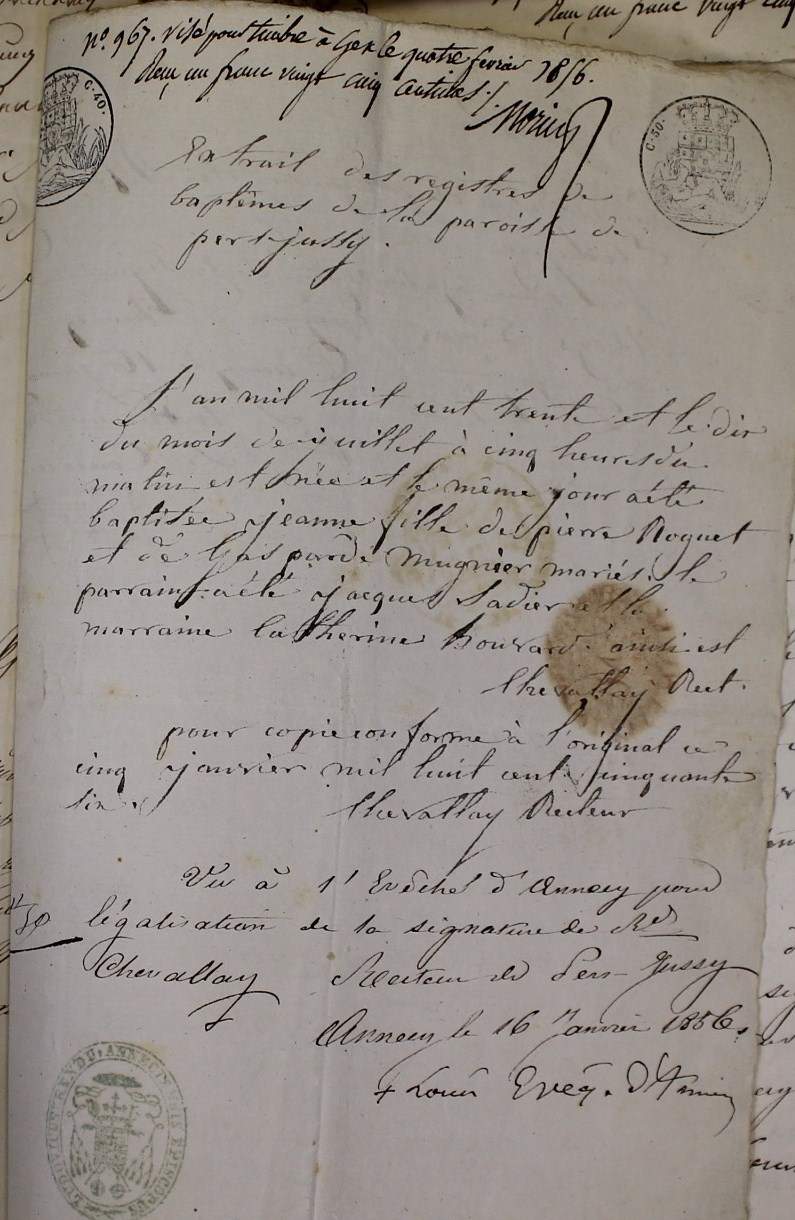 n°. 967. visé pour timbre à Gex le quatre fevrier 1856.
Reçu un franc vingt cinq centimes ./.
C. 40.
C. 50.
Extrait des registres de
baptêmes de la paroisse de
pers-jussy.
L'an mil huit cent trente et le dix
du mois de juillet à cinq heures du
matin est née et le même jour a été
baptisée jeanne fille de pierre Roguet
et de Gasparde mugnier mariés. le
parrain a été jacques Sadier et la
marraine Catherine Bouvard ainsi est
Chevallay Rect.
pour copie conforme à l'original ce
cinq janvier mil huit cent cinquante
six.
Chevallay Recteur
Vu à l'Evêché d'Annecy pour
légalisation de la signature de Rd
Chevallay Recteur de Pers-Jussy
Annecy le 16 Janvier 1856.
+ Louis Evêq. d'Annecy
LUDOVICUS RENDU ANNECIENSIS EPISCOPUS